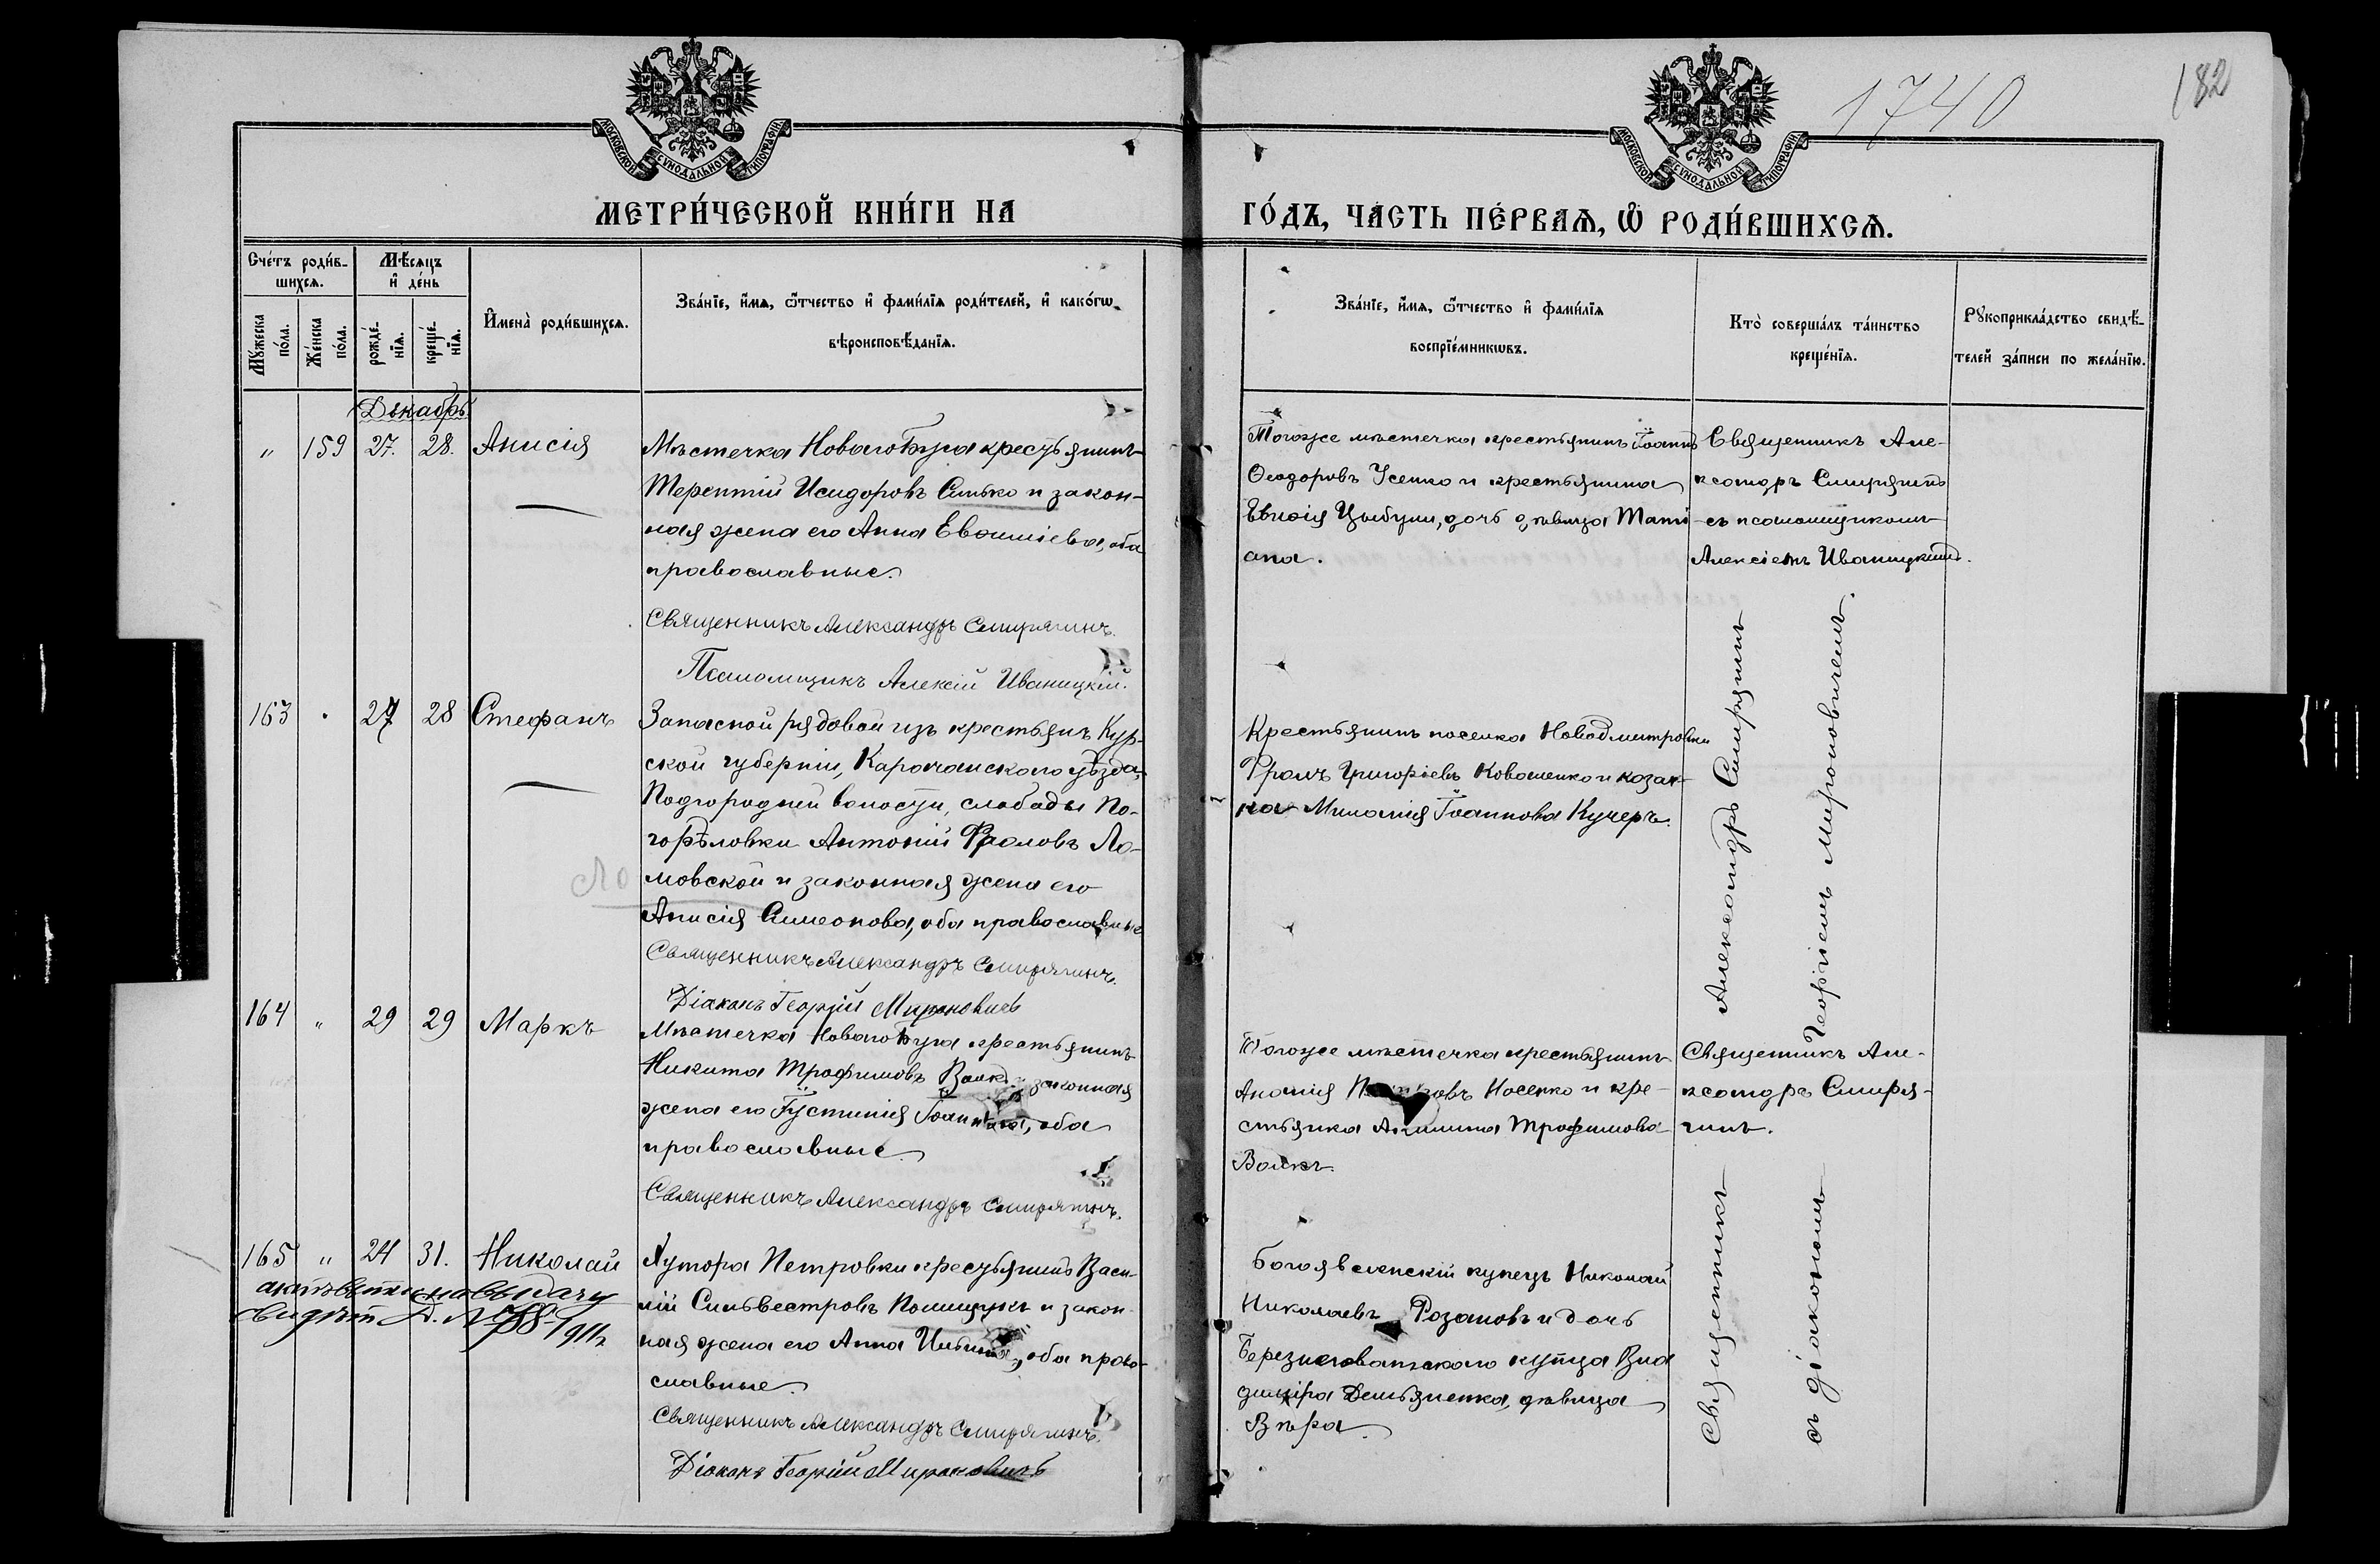 1740
182
МОСКОВСКОЙ СУНОДАЛЬНОЙ ТИПОГРАФІИ
МОСКОВСКОЙ СУНОДАЛЬНОЙ ТИПОГРАФІИ
МЕТРИ́ЧЕСКОЙ КНИ́ГИ НА
ГО́ДЪ, ЧА́СТЬ ПЕ́РВАѦ, Ѡ РОДИ́ВШИХСѦ.
Сче́тъ роди́в-
шихсѧ.
Мѣ́сѧцъ
и҆ де́нь
Мꙋ́жеска
по́ла.
Же́нска
по́ла.
рожде́-
нїѧ.
креще́-
нїѧ.
И҆мена̀ роди́вшихсѧ.
Зва́нїе, и҆́мѧ, ѻ҆́тчество и҆ фами́лїѧ роди́телей, и҆ како́гѡ
вѣроисповѣ́данїѧ.
Зва́нїе, и҆́мѧ, ѻ҆́тчество и҆ фами́лїѧ
воспрїе́мникѡвъ.
Кто̀ соверша́лъ та́инство
креще́нїѧ.
Рꙋкоприкла́дство свидѣ́-
телей за́писи по жела́нїю.
Декабрь
" 159 27. 28. Анисія
Мѣстечка Новаго Буга крестьянинъ
Терентій Исидоровъ Синько и закон-
ная жена его Анна Евѳиміева, оба
православные.
Священникъ Александръ Смирягинъ.
Псаломщикъ Алексій Иваницкій.
Тогоже мѣстечка крестьянинъ Іоаннъ
Ѳеодоровъ Усенко и крестьянина
Цыбули, дочь дѣвица Тати-
ана.
Священникъ Але-
ксандръ Смирягинъ
съ псаломщикомъ
Алексіемъ Иваницкимъ.
163 " 27 28 Стефанъ
Запасной рядовой изъ крестьянъ Кур-
ской губерніи, Корочанскаго уѣзда,
Подгородней волости, слободы По-
горѣловки Антоній Фроловъ Ло-
мовской и законная жена его
Анисія Симеонова, оба православные
Священникъ Александръ Смирягинъ.
Діаконъ Георгій Мироновичъ
Ло
Крестьянинъ поселка Новодмитровки
Фролъ Григоріевъ Коваленко и козач-
ка Миланія Іоаннова Кучеръ.
Священникъ Александръ Смирягинъ
съ діакономъ Георгіемъ Мироновичемъ.
164 " 29 29 Маркъ
Мѣстечка Новаго Буга крестьянинъ
Никита Трофимовъ Волкъ и законная
жена его Іустинія Іоаннова, оба
православные.
Священникъ Александръ Смирягинъ.
Тогоже мѣстечка крестьянинъ
Ананія Носенко и кре-
стьянка Акилина Трофимова
Волкъ.
Священникъ Але-
ксандръ Смиря-
гинъ.
165 " 24 31. Николай
выдачу
1911
Хутора Петровки крестьянинъ Васи-
лій Сильвестровъ Полищукъ и закон-
ная жена его Анна Ильина, оба право-
славные.
Священникъ Александръ Смирягинъ.
Діаконъ Георгій Мироновичъ
Богоявленскій купецъ Николай
Николаевъ Розановъ и дочь
Березнеговатскаго купца Вла
диміра Демьяненка, дѣвица
Вѣра.